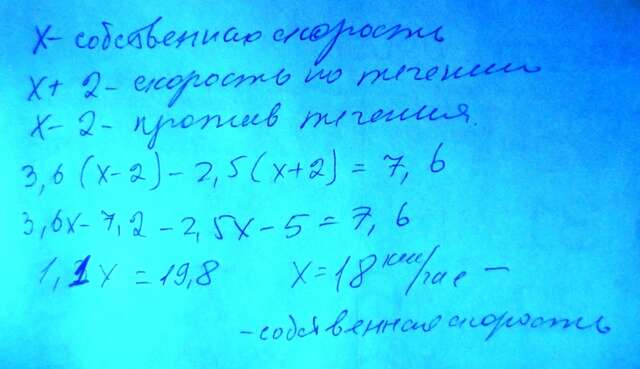 х- собственная скорость
х+ 2- скорость по течению
х- 2- против течения.
3,6 (х-2) - 2,5(х+2) = 7, 6
3,6х-7,2 - 2,5х - 5 = 7, 6
1,1х = 19,8 х=18 км/час -
-собственная скорость